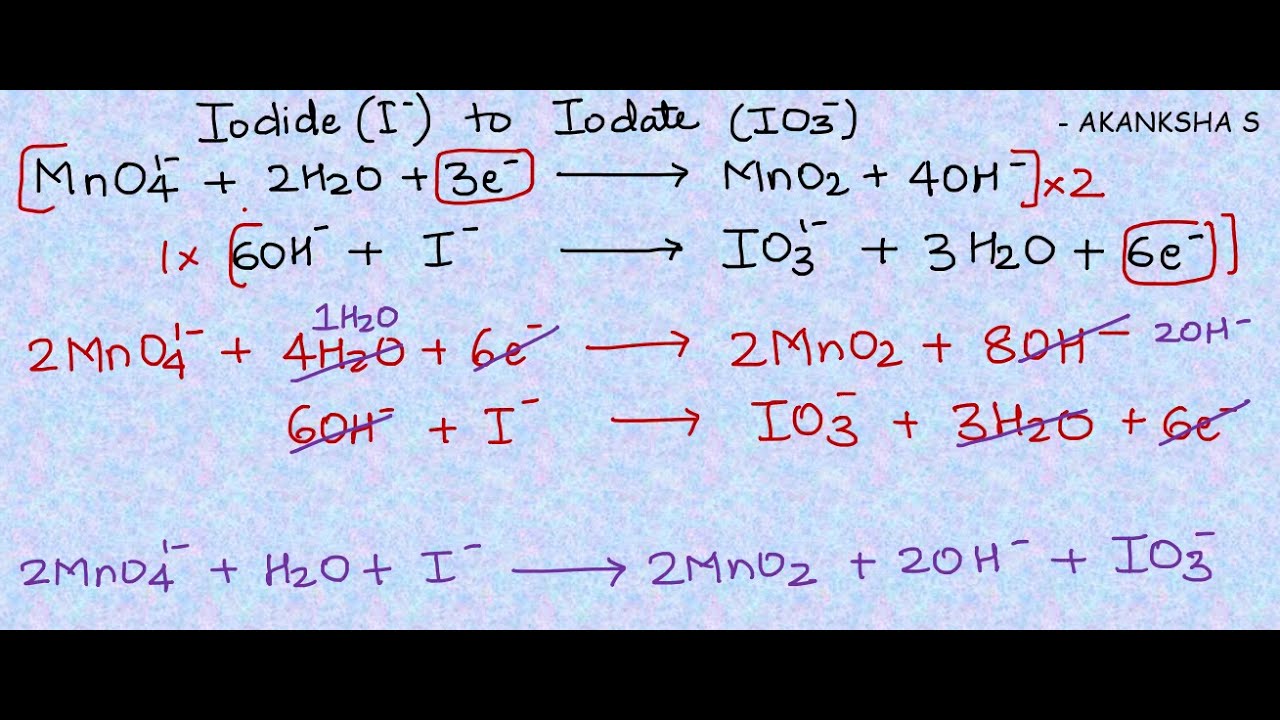 Iodide (I⁻) to Iodate (IO₃⁻) - AKANKSHA S
[MnO₄¹⁻ + 2H₂O + 3e⁻ ⟶ MnO₂ + 4OH⁻] ×2
1× [6OH⁻ + I⁻ ⟶ IO₃¹⁻ + 3H₂O + 6e⁻]
1H₂O
2MnO₄¹⁻ + 4H₂O + 6e⁻ ⟶ 2MnO₂ + 8OH⁻ 2OH⁻
6OH⁻ + I⁻ ⟶ IO₃⁻ + 3H₂O + 6e⁻
2MnO₄¹⁻ + H₂O + I⁻ ⟶ 2MnO₂ + 2OH⁻ + IO₃⁻